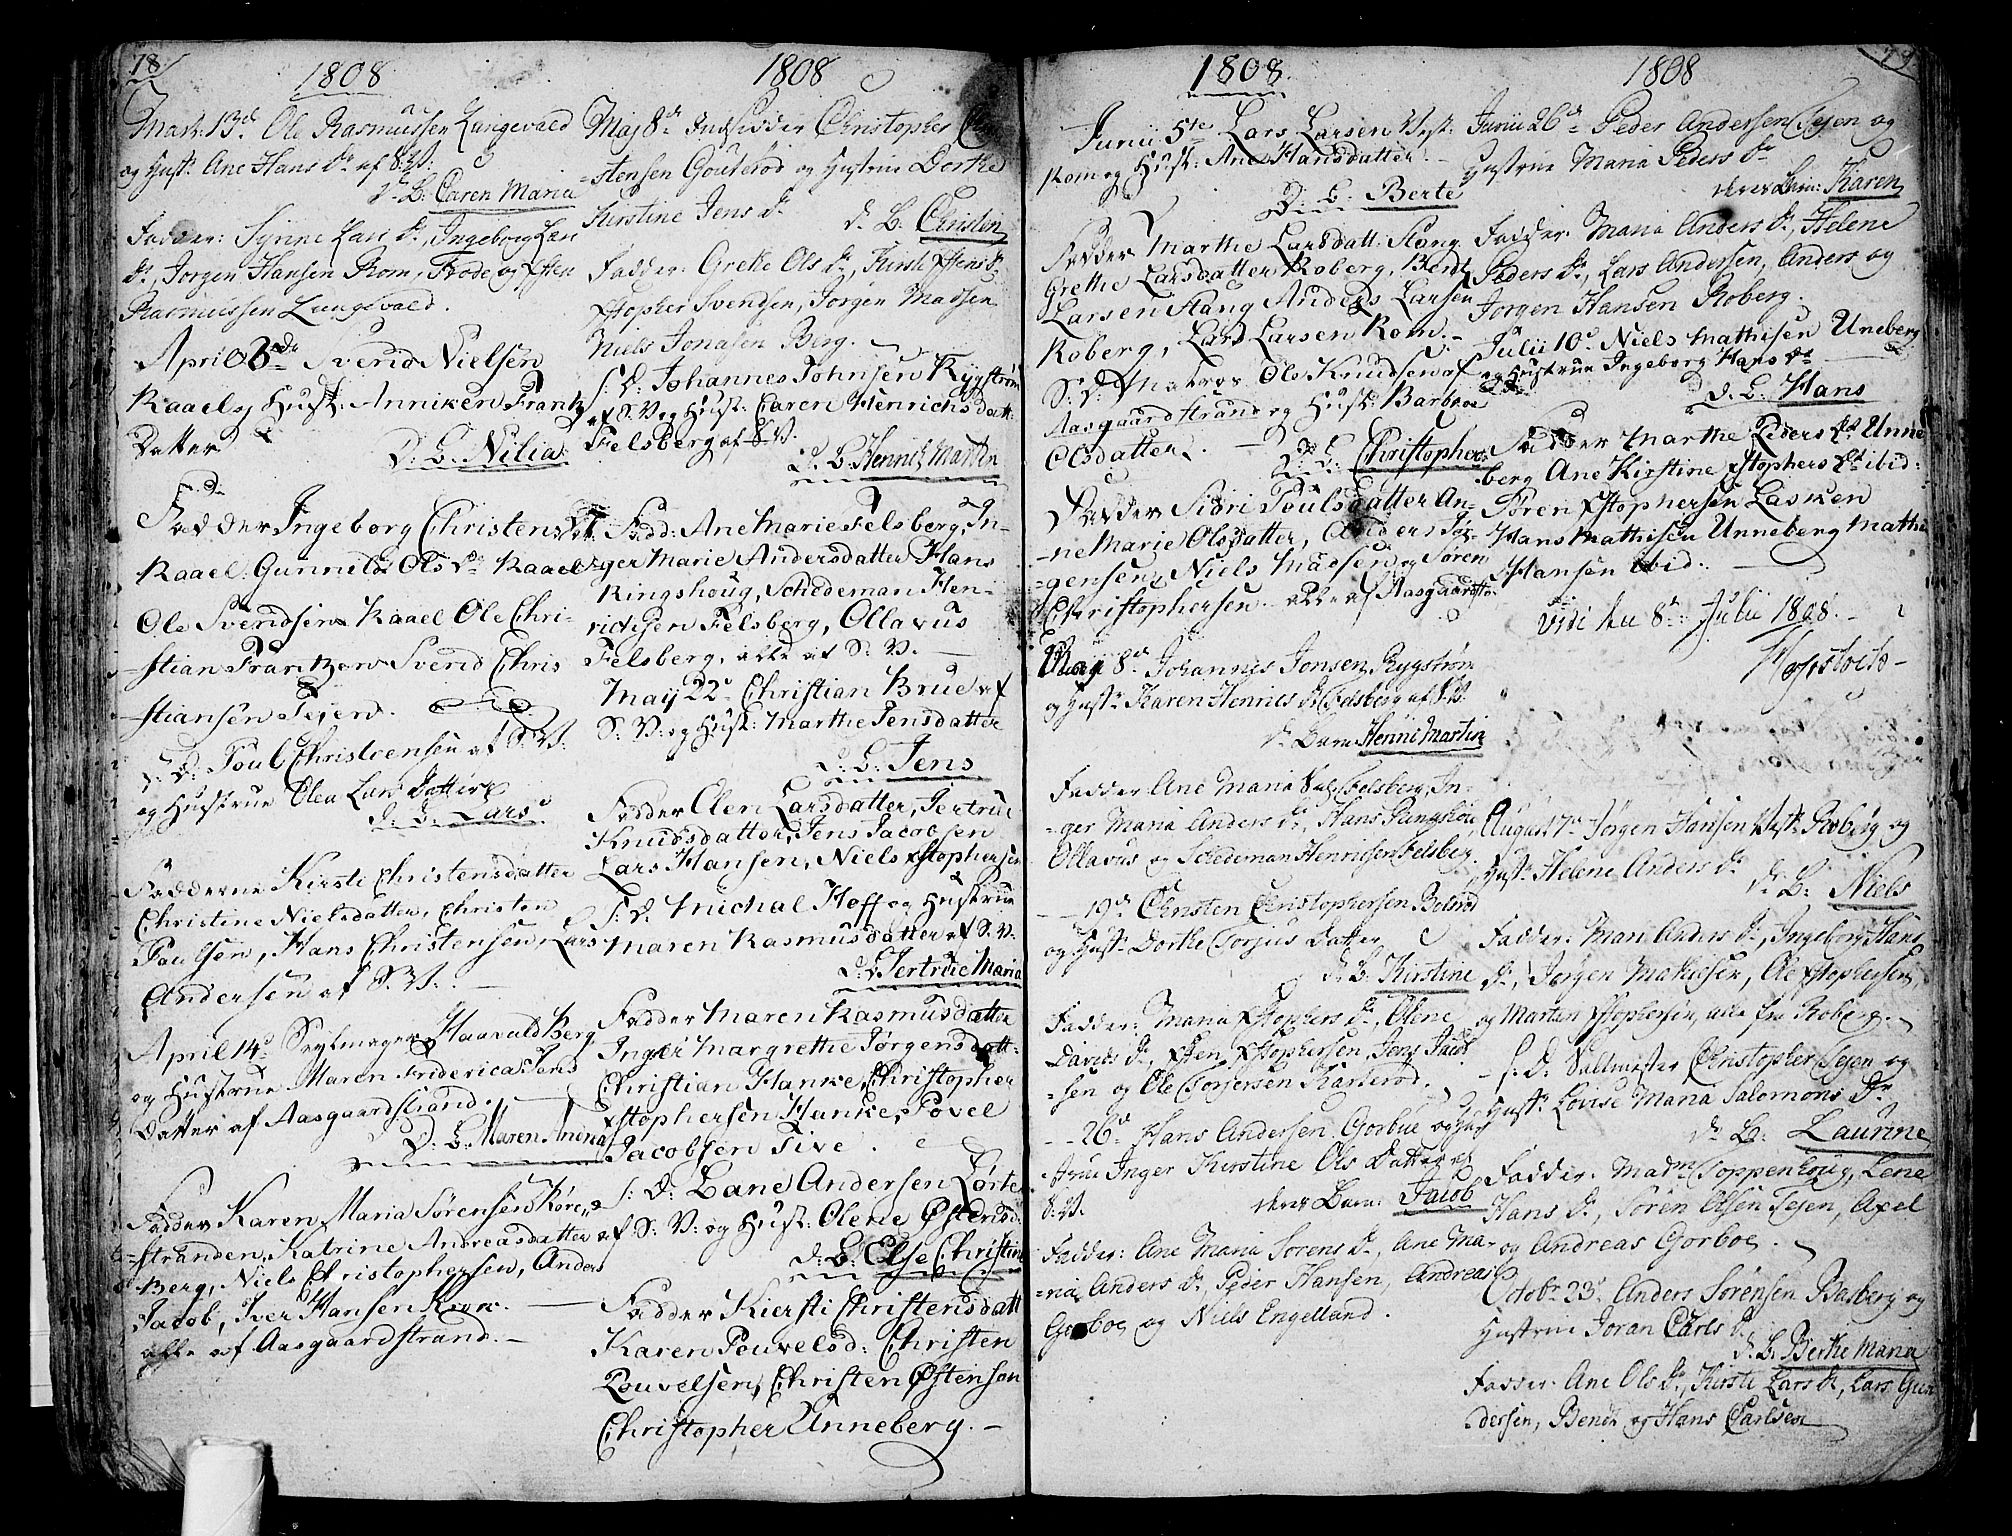 78
1808
Mart: 13de Ole Rasmussen Lungevald
og Hust: Ane Hans Dr af S: V:
Ds B: Caren Maria
Fadder: Syrine Lars Dr, Ingeborg Lars
Dr, Jørgen Hansen Rom, Frode og
Rasmussen Lungevald.
April 3de Svend Nielsen
Raael og Hust: Anniken Frantz
Datter
D: B: Nilia
Fadder Ingeborg Christensdt
Raael. Gunnild Ols Dr Raael
Ole Svendsen Raael Ole Chri-
-stian Frantzen Svend Chris
-stiansen Tejen.
S: D: Poul Christensen af S: V:
og Hustrue Olea Lars Datter
D: B: Lars
Fadderne Kirsti Christensdatter
Christine Nielsdatter, Christen
Poulsen, Hans Christensen, Lars
Andersen af S: V:
April 14de Seylmager Haavald Berg
og Hustrue Maren Fridericia Jens
Datter af Aasgaardstrand.
D: B: Maren Andrea
Fadder Karen Maria Sørensen Røre
stranden, Katrine Andreasdatter
Berg, Niels Christophersen, Anders
Jacob, Iver Hansen Krok.
alle af Aasgaardstrand.
1808
Maj 8de Indsidder Christopher
-stensen Gouterød og Hustrue Dorthe
Kirstine Jens Dr
D: B: Christen
Fadder: Grethe Ols Dr, Kirsti
Xstopher Svendsen, Jørgen Madsen
Niels Jonasen Berg.
S: D: Johannes Johnsen Rygstrøm
af S: V: og Hust: Caren Henrichsdatt:
Felsberg af S: V:
D: B: Henrich Martin
Fadd: Ane Marie Felsberg, In-
-ger Marie Andersdatter Hans
Ringshoug, Schideman Hen-
richsen Felsberg, Ollavus
Felsberg, alle af S: V:
May 22de Christian Brue af
S: V: og Hust: Marthe Jensdatter
D: B: Jens
Fadder Elen Larsdatter, Jertrue
Knudsdatter, Jens Jacobsen
Lars Hansen, Niels Xstophersen
S: D: Michal Hoff og Hustrue
Maren Rasmusdatter af S: V:
D: B: Jertrue Maria
Fadder Maren Rasmusdatter
Inger Margrethe Jørgensdatt:
Christian Hanke, Christopher
Xstophersen Hanke, Povel
Jacobsen Tive.
S: D: Lane Andersen Lørte
af S: V: og Hust: Olene Østensd:
D: B: Else Christine
Fadder Kiersti Christensdatt
Karen Pouvelsd: Christen
Pouvelsen, Christen Østensen
Christopher Unneberg.
1808
Junii 5te Lars Larsen Vest:
Rom og Hust: Ane Hansdatter.
D: B: Berte
Fadder Marthe Larsdatt: Haug
Grethe Larsdatter Roberg, Bendt
Larsen Haug Anders Larsen
Roberg, Lars Larsen Rom.
S: D: Matros Ole Knudsen af
Aasgaardstrand og Hust: Barbroe
Olsdatter.
D: B: Christopher
Fadder Sidri Poulsdatter An-
-ne Marie Olsdatter, Anders Jør-
-gensen, Niels Madsen og Søren
Christophersen alle af Aasgaardstr:
May 8de Johannes Jonsen Rygstrøm
og Hust: Karen Henrics Dr Felsberg af S: V:
Ds Barn: Henric Martin
Fadder Ane Maria Felsberg, In-
-ger Maria Anders Dr, Hans Ringshou
Ollavus og Schideman Henricsen Felsberg.
- - 19de Christen Christophersen
og Hust: Dorthe Torjus Datter
Ds B: Kirstine
Fadder: Maria Xstophers Dr, Olene
Davids Dr, Xsten Xstophersen, Jens Jacob
-sen og Ole Torjersen Karterød.
- - 26de Hans Andersen Gorboe og Hu
strue Inger Kirstine Ols Datter af
S: V:
deres Barn: Jacob
Fadder: Ane Maria Sørens Dr, Ane Ma-
-ria Anders Dr, Peder Hansen, Andreas
Gorboe og Niels Engelland.
1808
79
Junii 26de Peder Andersen Tejen og
Hustrue Maria Peders Dr
deres Barn: Karen
Fadder: Maria Anders Dr, Helene
Peders Dr, Lars Andersen, Anders og
Jørgen Hansen Roberg.
Julii 10de Niels Mathisen Uneberg
og Hustrue Ingeborg Hans Dr
D: B: Hans
Fadder Marthe Peders Dr Unne
berg Ane Kirstine Xstophers Dr ibid:
Søren Xstophersen Lasken
Hans Mathisen Unneberg Mathi
Hansen ibid.
Vidi du 8de Julii 1808.
August 7de Jørgen Hansen Vest: Roberg og
Hust: Helene Anders Dr
Ds B: Niels
Fadder: Mari Anders Dr, Ingeborg Hans
Dr, Jørgen Mathisen, Ole Xstophersen,
og Martin Xstophersen, alle fra Roberg.
- S: D: Saltmester Christopher Tejen og
Hust: Lovise Maria Salomons Dr
Ds B: Laurine
Fadder: Madm Toppenhoug, Lene
Hans Dr, Søren Olsen Tejen, Axel
og Andreas Gorboe.
Octobr 23de Anders Sørensen Basberg og
Hustrue Joran Carls Dr
D: B: Berthe Maria
Fadder: Ane Ols Dr, Kirsti Lars Dr, Lars Gun
dersen, Bendt og Hans Carlsen